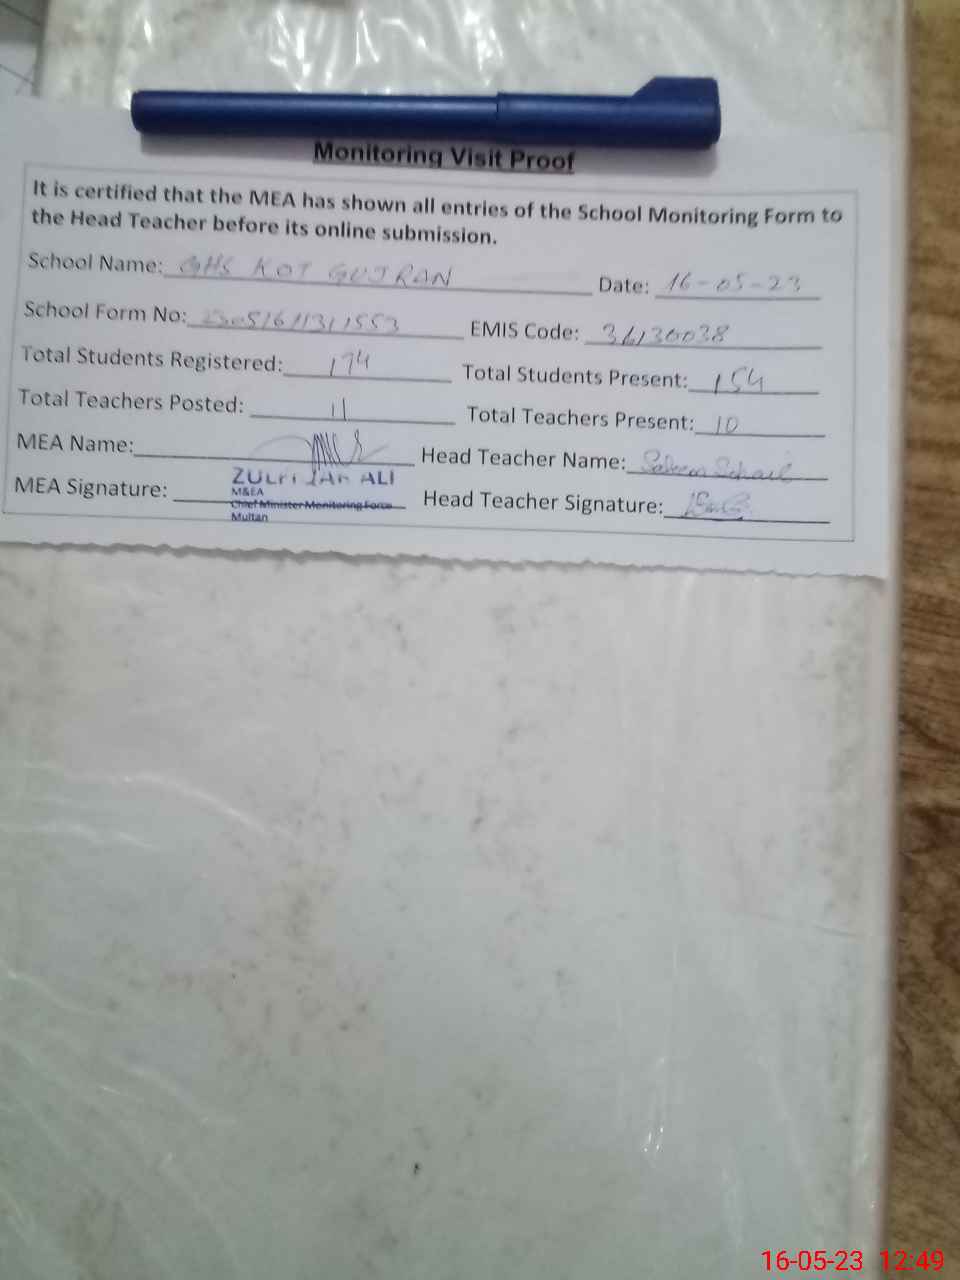 Monitoring Visit Proof
It is certified that the MEA has shown all entries of the School Monitoring Form to
the Head Teacher before its online submission.
School Name: GHS KOT GUJRAN Date: 16-05-23
School Form No: EMIS Code: 36130038
Total Students Registered: 174 Total Students Present: 154
Total Teachers Posted: 11 Total Teachers Present: 10
MEA Name: Head Teacher Name:
ALI
M&EA
MEA Signature: Chief Minister Monitoring Force Head Teacher Signature:
Multan
16-05-23 12:49